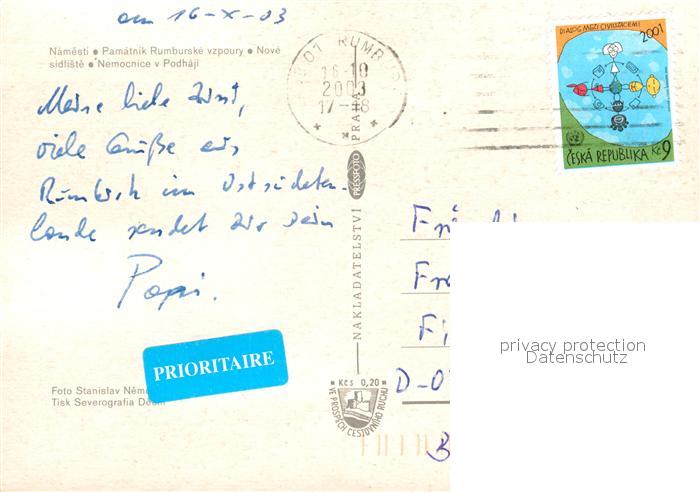 am 16-X-03
Náměstí • Památník Rumburské vzpoury • Nové
sídliště • Nemocnice v Podhájí
Meine liebe
viele Grüße aus
Rumburk im Ostsudeten-
lande sendet Dir Dein
Papi.
PRIORITAIRE
Foto Stanislav Něm
Tisk Severografia Děčín
01 RUMB
16-10
2003
17-18
PRAHA
PRESSFOTO
NAKLADATELSTVÍ
Kčs 0,20
VE PROSPĚCH CESTOVNÍHO RUCHU
DIALOG MEZI CIVILIZACEMI
2001
ČESKÁ REPUBLIKA Kč 9
Fr
Fi
D-0
B
privacy protection
Datenschutz